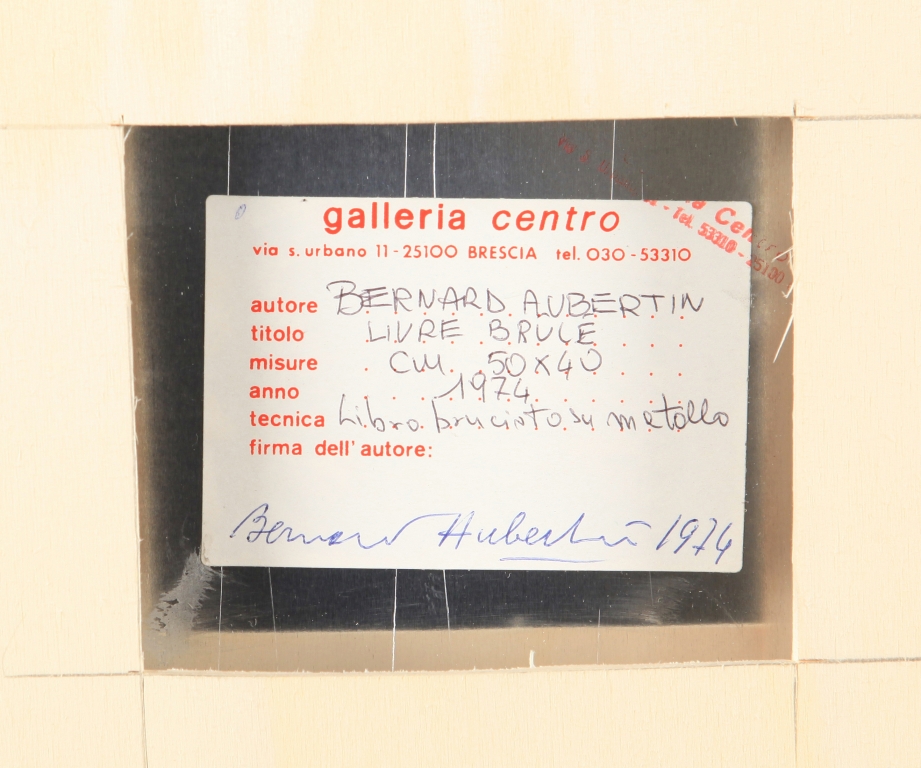 galleria centro
via s. urbano 11 - 25100 BRESCIA tel. 030 - 53310
autore BERNARD AUBERTIN
titolo LIVRE BRULE
misure CM. 50X40
anno 1974
tecnica Libro bruciato su metallo
firma dell'autore:
Bernard Aubertin 1974
Tel. 53310 - 25100